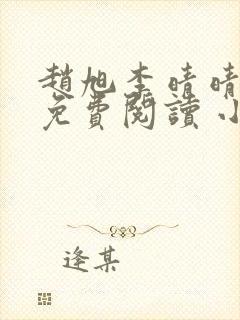 趙旭李晴晴
免費閱讀小
逢某